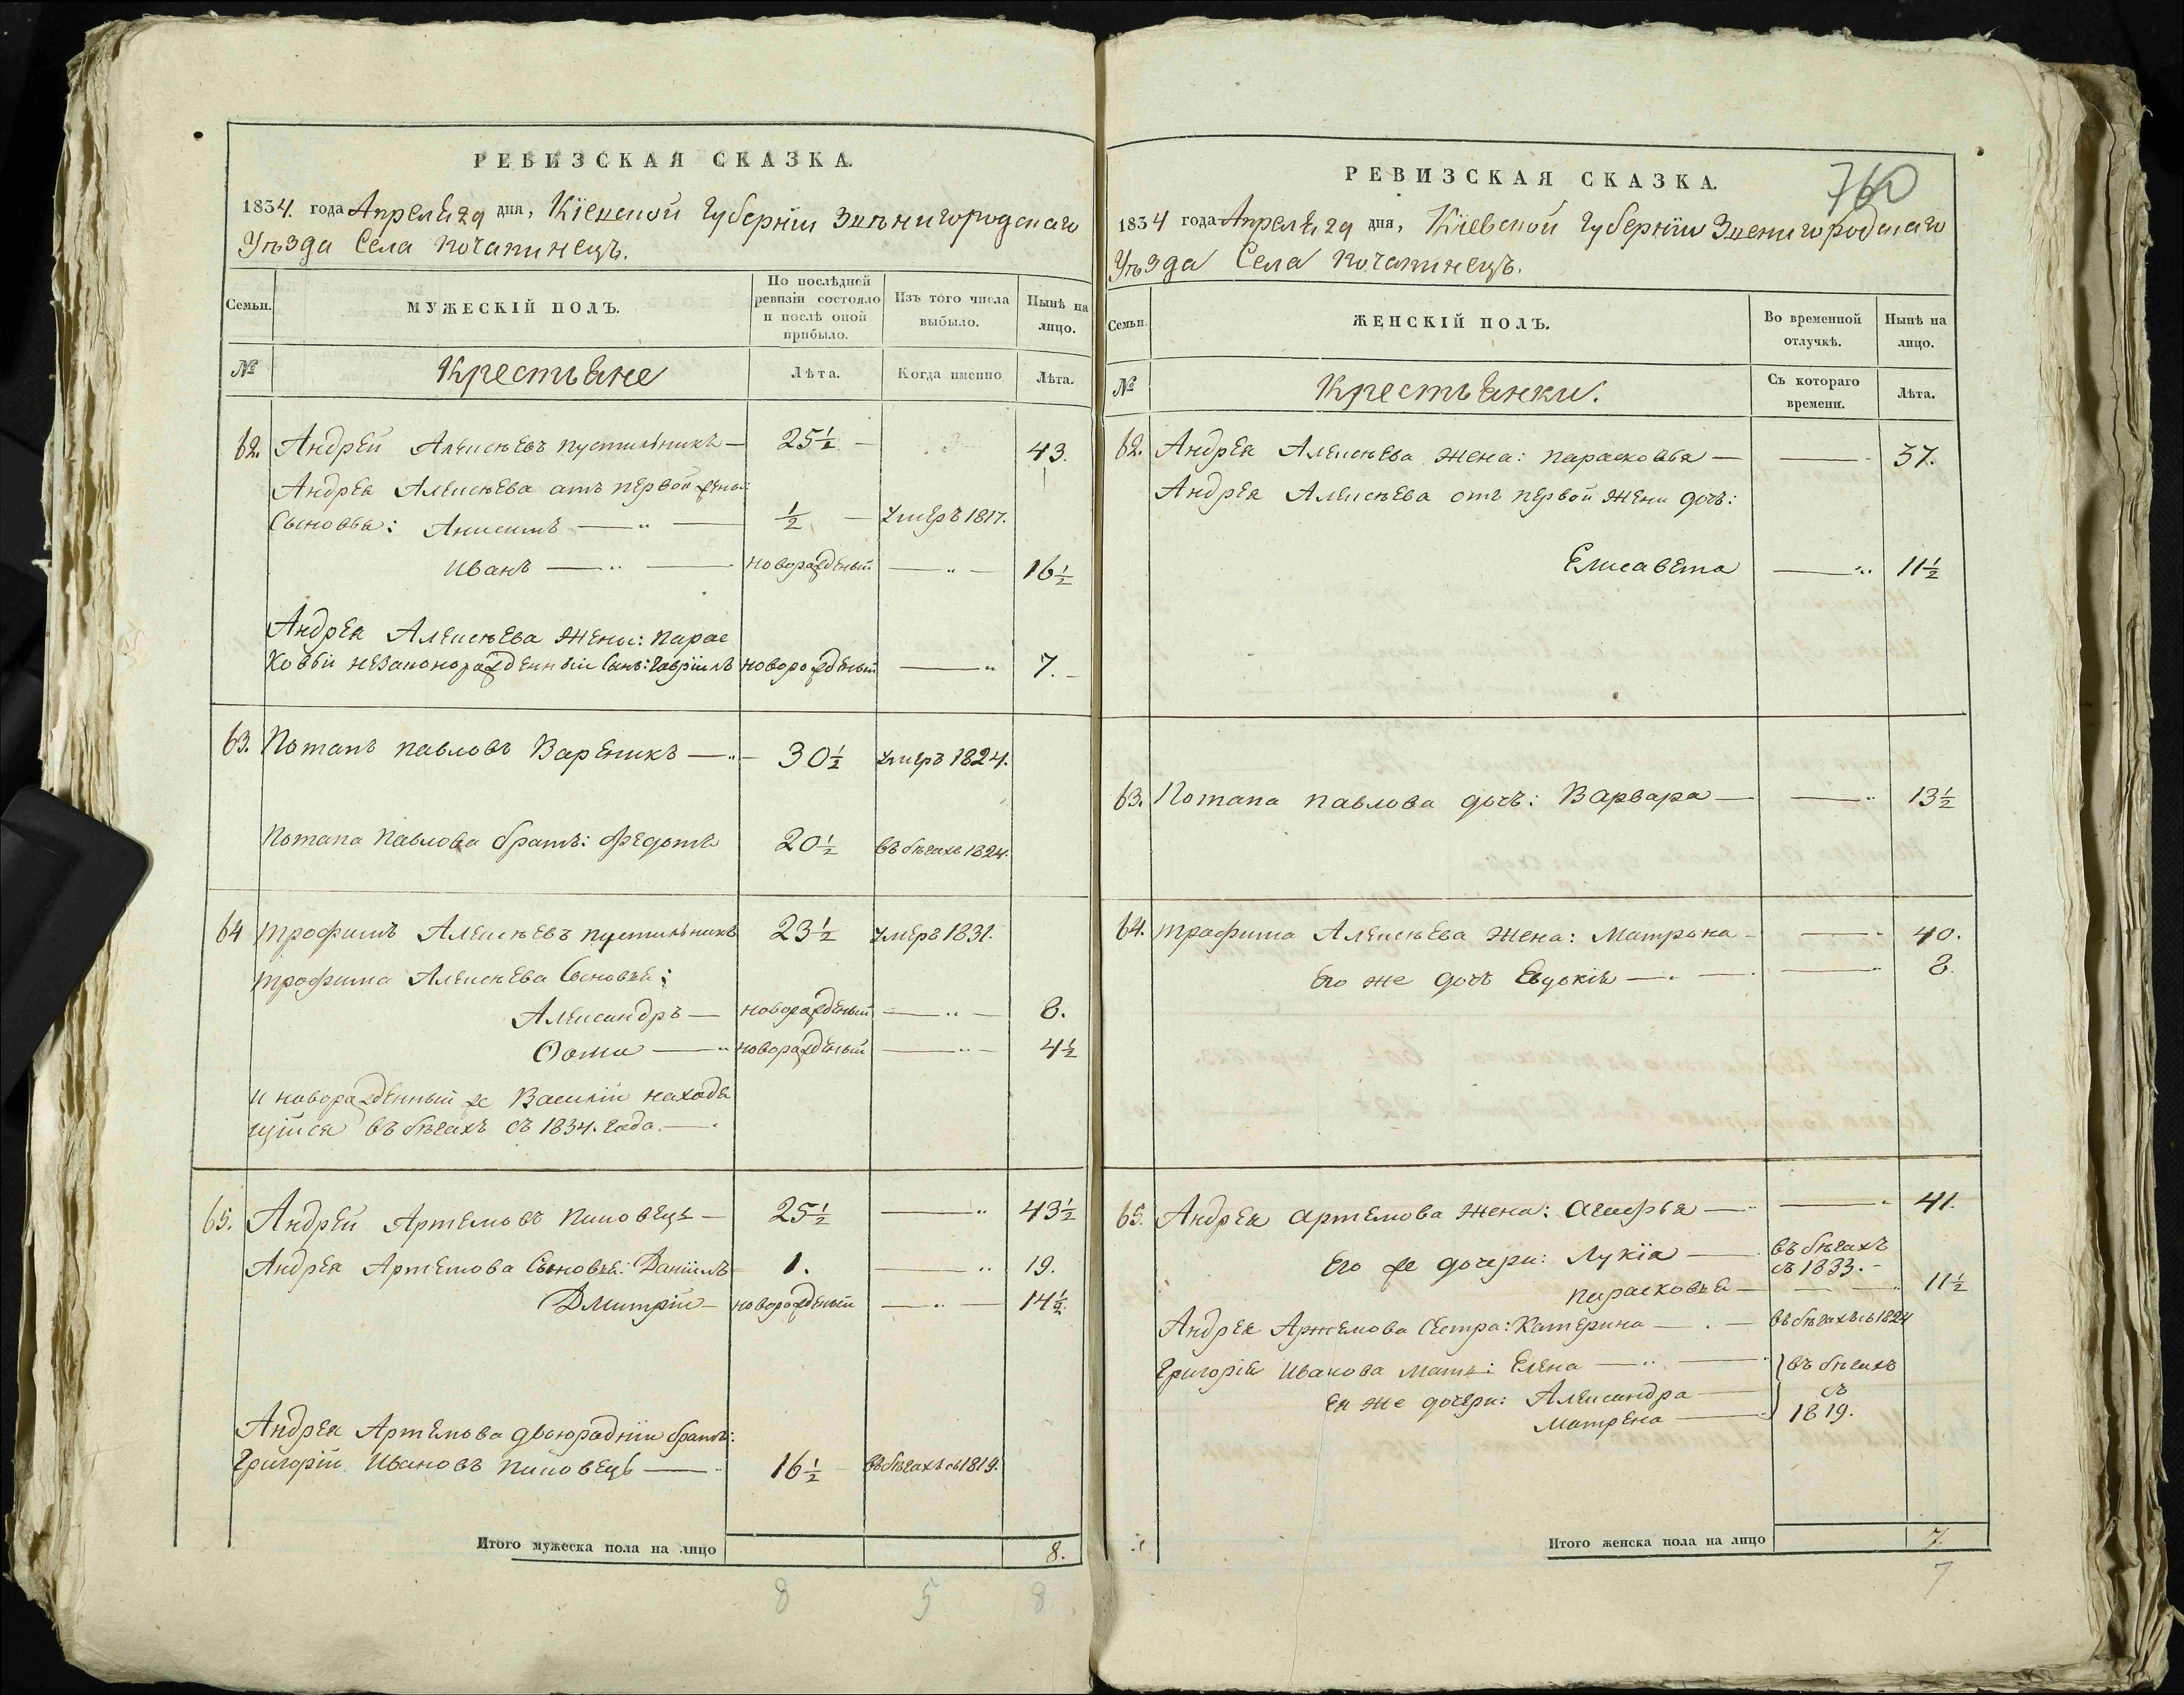 РЕВИЗСКАЯ СКАЗКА.
1834. года Апреля 29 дня, Кіевской Губерніи Звѣнигородскаго
Уѣзда Села Почапинецъ.
Семьи.
МУЖЕСКІЙ ПОЛЪ.
По послѣдней ревизіи состояло и послѣ оной прибыло.
Изъ того числа выбыло.
Нынѣ на лицо.
№
Крестьяне
Лѣта.
Когда именно
Лѣта.
62. Андрей Алексѣевъ Пустильникъ — 25½ — 43.
Андрея Алексѣева отъ первой жены
Сыновья: Анисимъ — ½ — Умеръ 1817.
Иванъ — новорожденый — 16½
Андрея Алексѣева жены: Парас
ковьи незаконорожденный Сынъ: Гавріилъ новорожденый — 7.
63. Потапъ Павловъ Вареникъ — 30½ умеръ 1824.
Потапа Павлова братъ: Федотъ 20½ въ бѣгахъ 1824.
64 Трофимъ Алексѣевъ Пустильникъ 23½ Умеръ 1831.
Трофима Алексѣева Сыновья:
Александръ — новорожденый — 8.
Ѳома — новорожденый — 4½
и новорожденный же Василій находя
щійся въ бѣгахъ съ 1834. года. —
65. Андрей Артемовъ Пиковецъ — 25½ — 43½
Андрея Артемова Сыновья: Даніилъ 1. — 19.
Дмитрій — новорожденый — 14½.
Андрея Артемова двоюродній братъ:
Григорій Ивановъ Пиковецъ — 16½ въ бѣгахъ съ 1819.
Итого мужеска пола на лицо 8.
8 5 8
760
РЕВИЗСКАЯ СКАЗКА.
1834 года Апреля 29 дня, Кіевской Губерніи Звенигородскаго
Уѣзда Села Почапинецъ.
Семьи.
ЖЕНСКІЙ ПОЛЪ.
Во временной отлучкѣ.
Нынѣ на лицо.
№
Крестьянки.
Съ котораго времени.
Лѣта.
62. Андрея Алексѣева жена: Парасковья — 37.
Андрея Алексѣева отъ первой жены дочь:
Елисавета — 11½
63. Потапа Павлова дочь: Варвара — 13½
64. Трофима Алексѣева жена: Матрона — 40.
Его же дочь Евдокія — 8.
65. Андрея Артемова жена: Агафья — 41.
Его же дочери: Лукія — въ бѣгахъ
съ 1833. —
Парасковья — 11½
Андрея Артемова Сестра: Катерина — въ бѣгахъ съ 1824
Григорія Иванова мать: Елена — въ бѣгахъ
ея же дочери: Александра — съ
Матрена — 1819.
Итого женска пола на лицо 7.
7